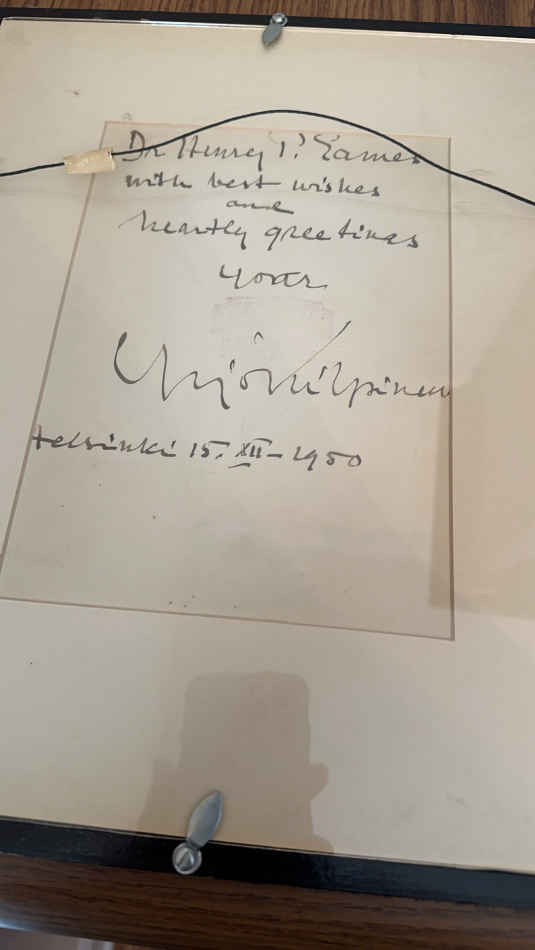 Dr Henry P. Eames
with best wishes
and
heartly greetings
your
Yrjö Kilpinen
Helsinki 15. XII – 1950